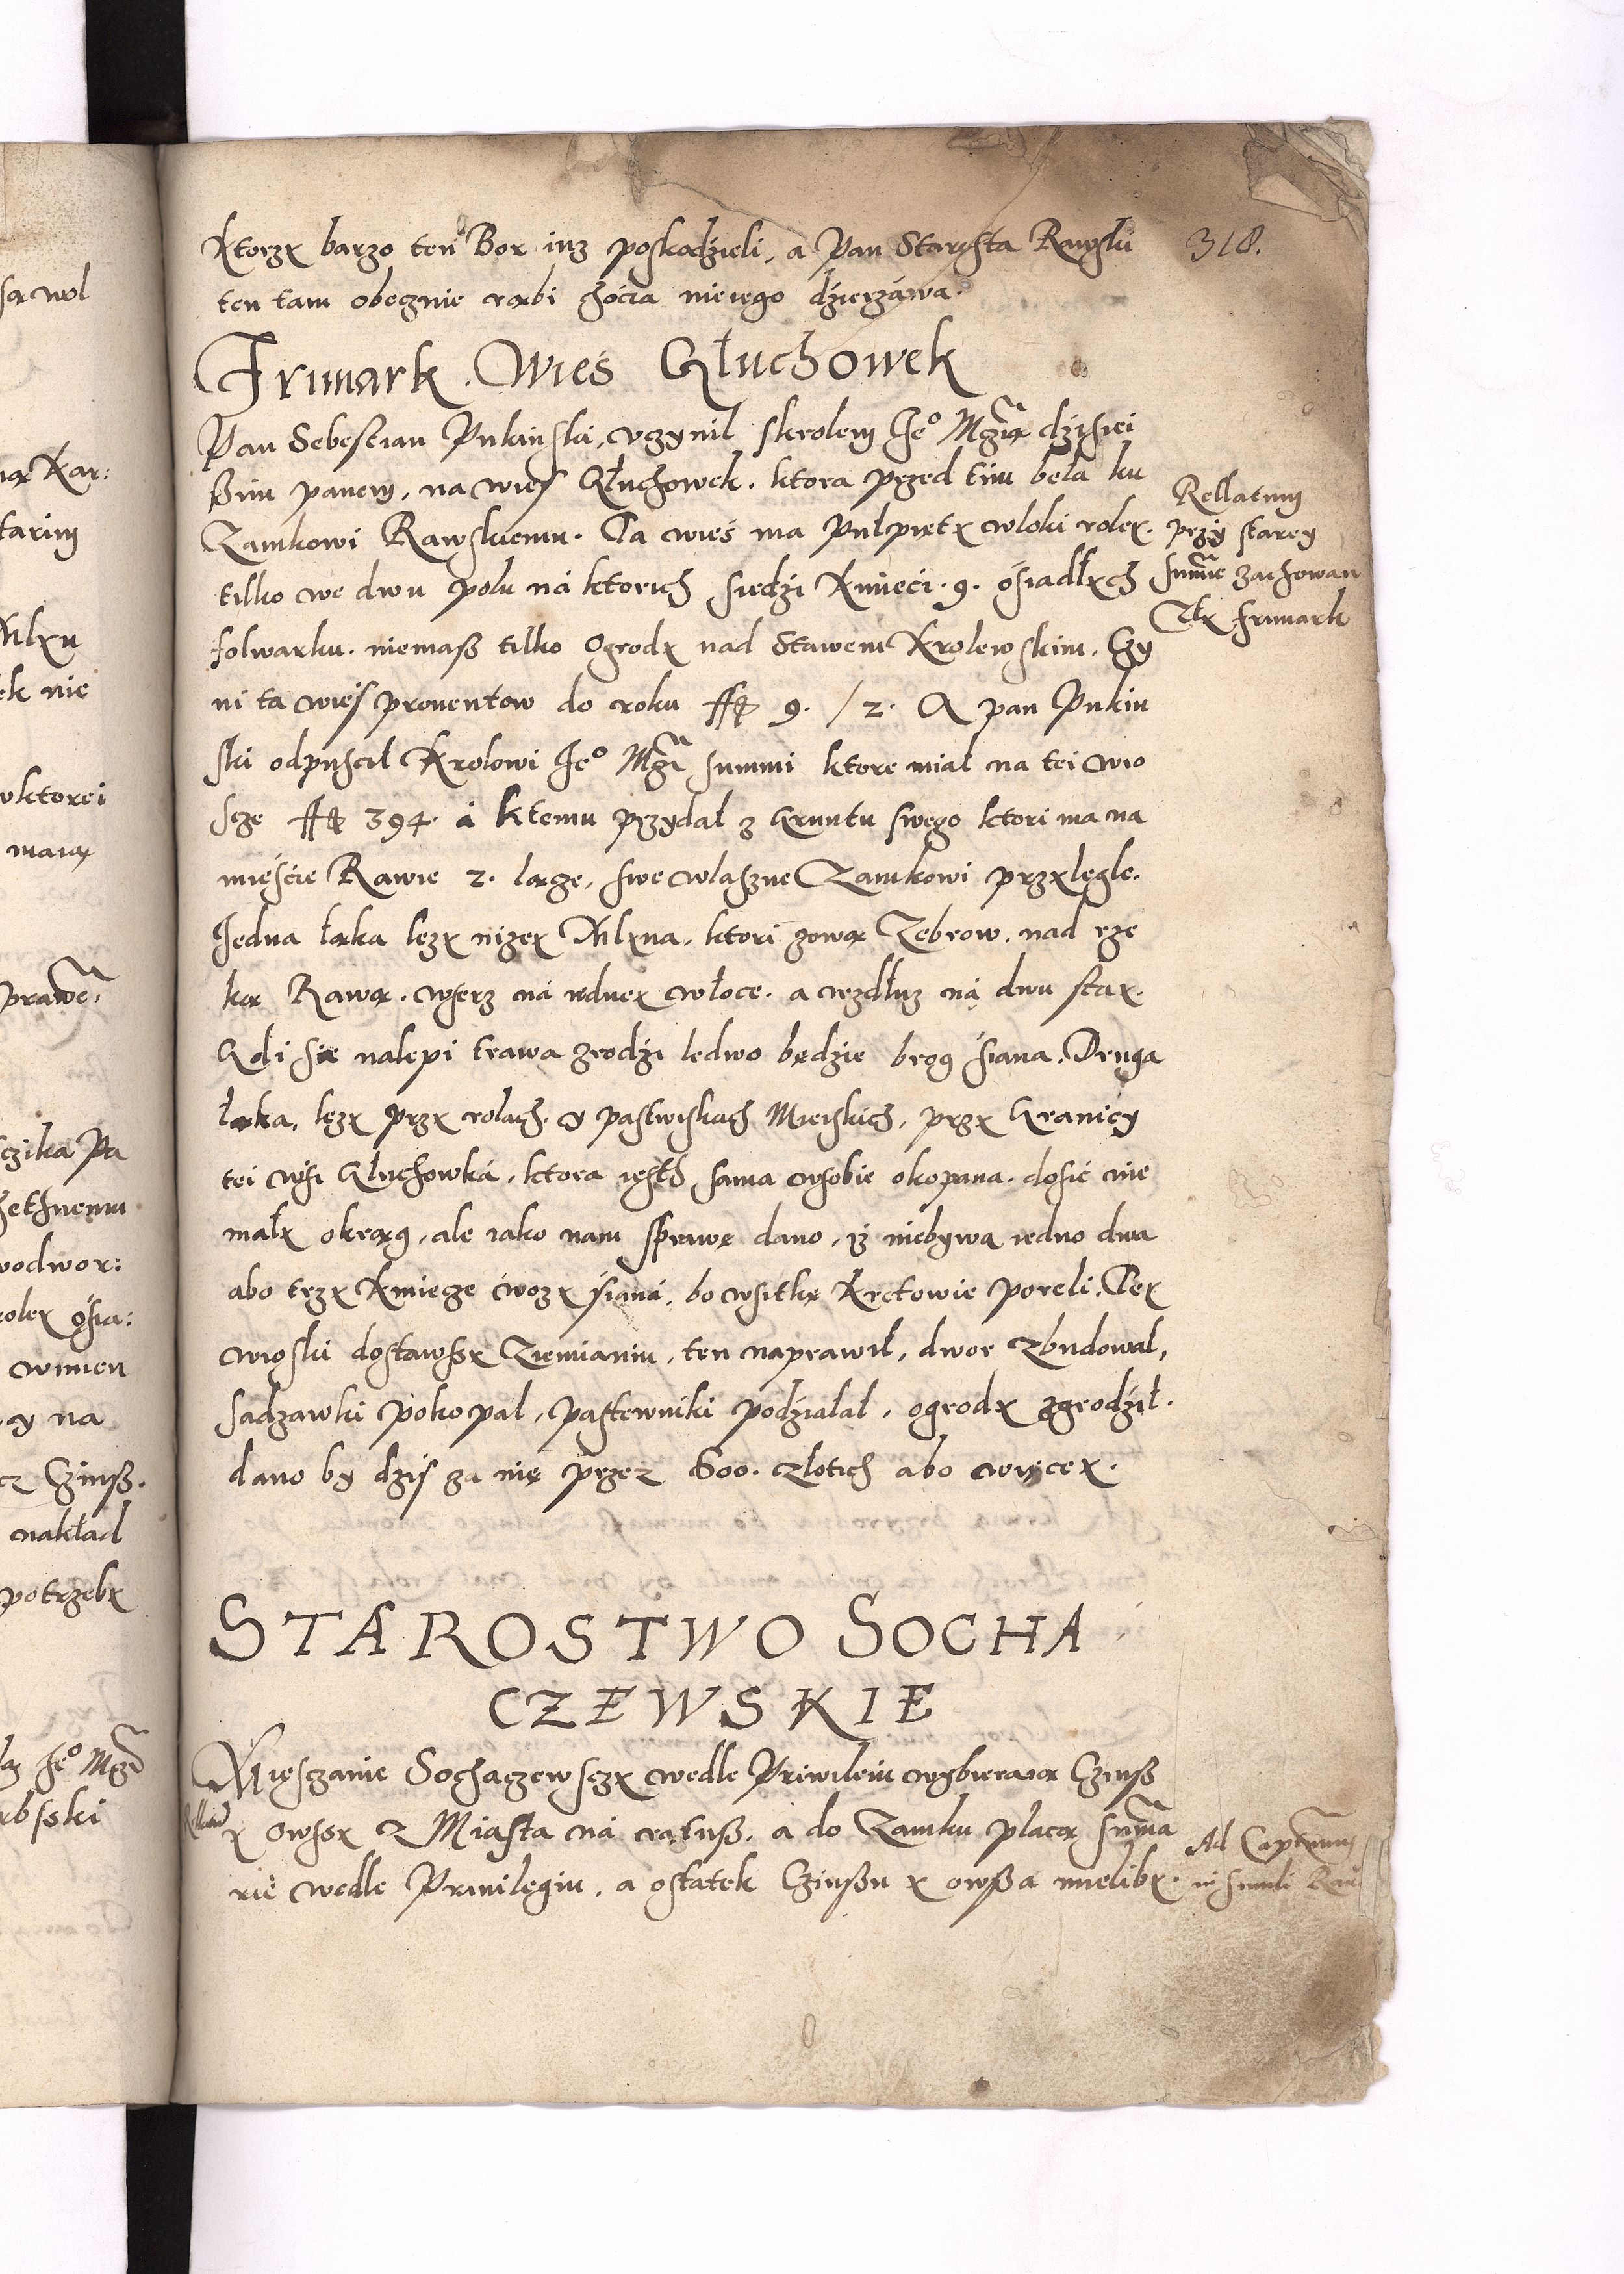 318.
Ktorzy barzo ten Bor iuz poskodzieli, a Pan Starosta Rawski
ten tam obecznie rąbi chocia nieiego dzierzáwa.
Frimark. Wieś Głuchowek
Pan Sebestian Pukinski, vczynil skrolem Je° Mczią dzisiei
ßim panem, na wieś Głuchowek. ktora przed tim beła ku
Zamkowi Rawskiemu. Ta wieś ma Pułpięty włoki roley.
tilko we dwu polu ná ktorich siedzi Kmieci. 9. ośiadłych
folwarku. niemaß tilko Ogrody nad Stawem Krolewskim. Czy
ni ta wieś prouentow do roku ff 9. / 2. A pan Pukin
ski odpuscił Krolowi Je° Mczi summi ktore miał na tei wio
scze ff 394. á ktemu przydał z Gruntu swego ktori ma na
mieście Rawie 2. lącze, swe właszne Zamkowi przyległe.
Jedna łąka lezy nizey Młyna, ktori zową Zebrow. nad rze
ką Rawą. wserz ná iedney włoce. a wzdłuz ná dwu stay.
Gdi sie nalepi trawa zrodzi ledwo będzie brog siana. Druga
łąka, lezy przy rolach. y pastwiskach Mieiskich, przy Granicy
tei wsi Głuchowká, ktora iesth sama wsobie okopana. dosić nie
mały okrąg, ale iako nam sprawę dano, iż niebywa iedno dwa
abo trzy Kmiecze wozy śianá, bo wsitkę Kretowie poreli. Tey
wioski dostawszy Ziemianin, ten naprawił, dwor zbudował,
sadzawki pokopał, pastewniki podziałał, ogrody zgrodził.
dano by dziś za nię przez 600. złotich abo więcey.
Rellatum
przy starey
summie zachowan
Tky frimark
STAROSTWO SOCHA
CZEWSKIE
Miesczanie Sochaczewsczy wedle Priwileiu wybieraią Czinß
y owsy z Miasta ná ratuß. a do Zamku placą summa
rie wedle Priuilegiu. a ostatek Czinßu y owßa mieliby.
Ad Captum
in simili